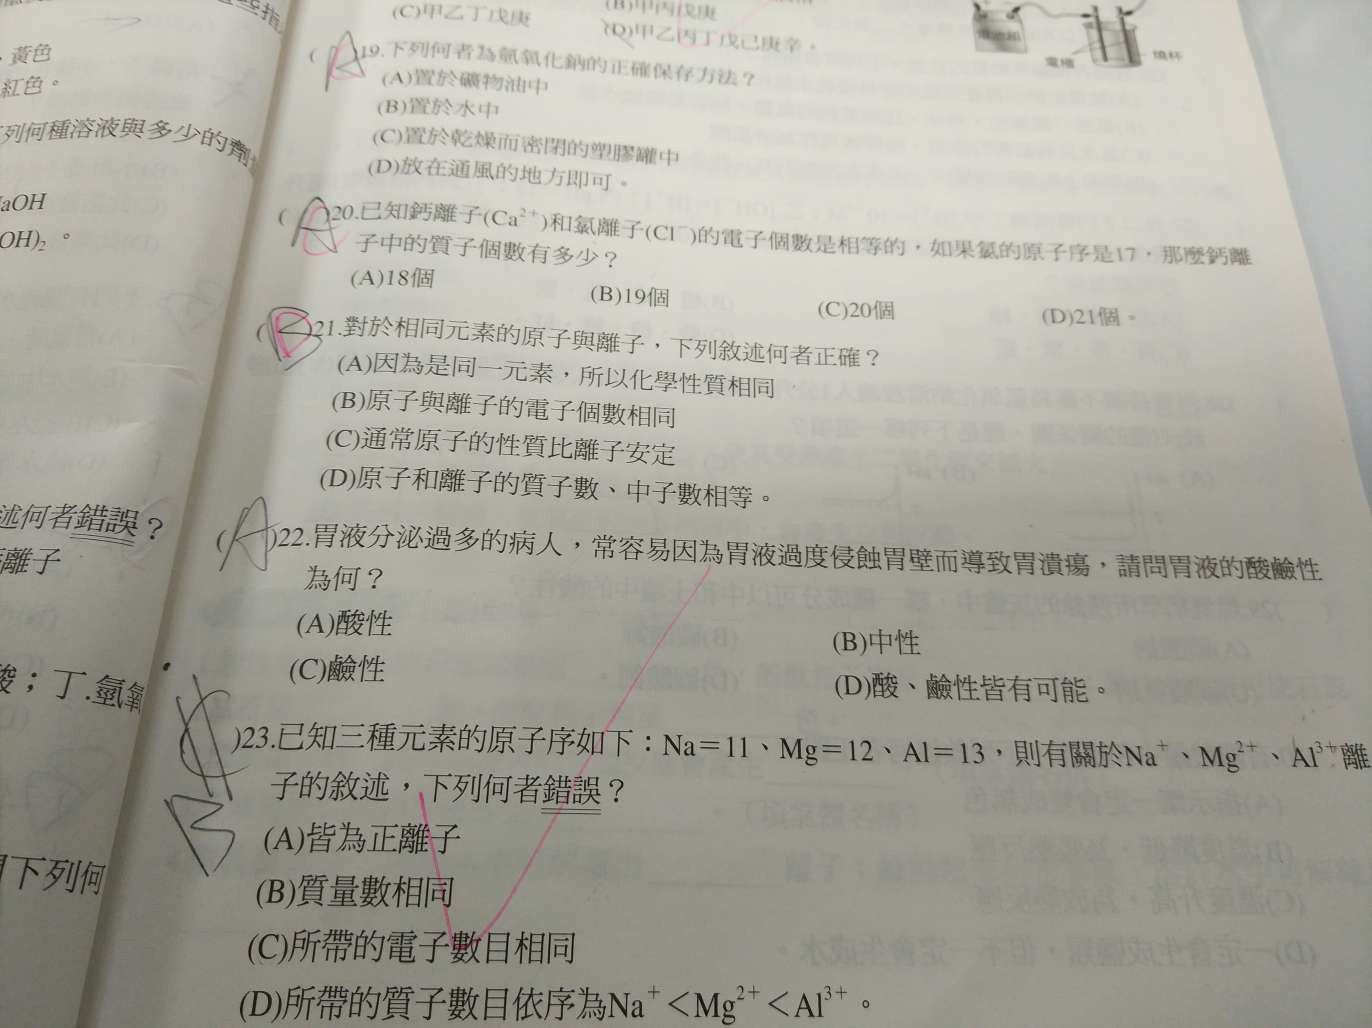 黃色
紅色。
列何種溶液與多少的劑
aOH
OH)₂。
述何者錯誤？
離子
酸；丁.氫氧
下列何
(C)甲乙丁戊庚
(B)甲丙戊庚
(D)甲乙丙丁戊己庚辛。
電池組
電極
燒杯
19.下列何者為氫氧化鈉的正確保存方法？
(A)置於礦物油中
(B)置於水中
(C)置於乾燥而密閉的塑膠罐中
(D)放在通風的地方即可。
( A )20.已知鈣離子(Ca²⁺)和氯離子(Cl⁻)的電子個數是相等的，如果氯的原子序是17，那麼鈣離
子中的質子個數有多少？
(A)18個 (B)19個 (C)20個 (D)21個。
( B )21.對於相同元素的原子與離子，下列敘述何者正確？
(A)因為是同一元素，所以化學性質相同
(B)原子與離子的電子個數相同
(C)通常原子的性質比離子安定
(D)原子和離子的質子數、中子數相等。
( A )22.胃液分泌過多的病人，常容易因為胃液過度侵蝕胃壁而導致胃潰瘍，請問胃液的酸鹼性
為何？
(A)酸性 (B)中性
(C)鹼性 (D)酸、鹼性皆有可能。
)23.已知三種元素的原子序如下：Na＝11、Mg＝12、Al＝13，則有關於Na⁺、Mg²⁺、Al³⁺離
子的敘述，下列何者錯誤？
B
(A)皆為正離子
(B)質量數相同
(C)所帶的電子數目相同
(D)所帶的質子數目依序為Na⁺＜Mg²⁺＜Al³⁺。